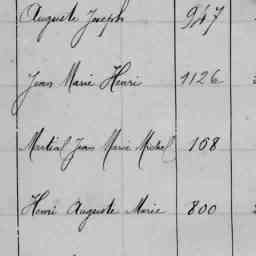 Auguste Joseph 947
Jean Marie Henri 1126
Martial Jean Marie Michel 168
Henri Auguste Marie 800